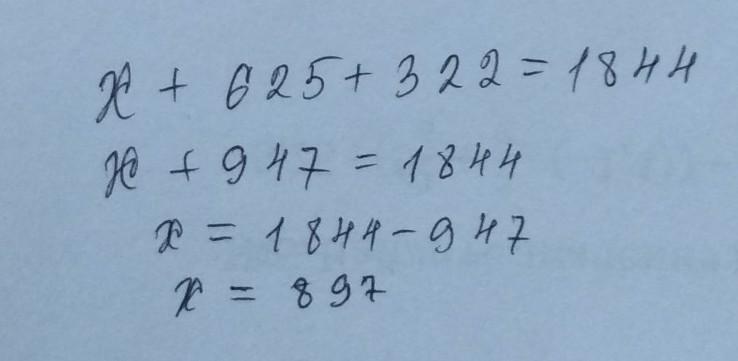 x + 625 + 322 = 1844
x + 947 = 1844
x = 1844 - 947
x = 897